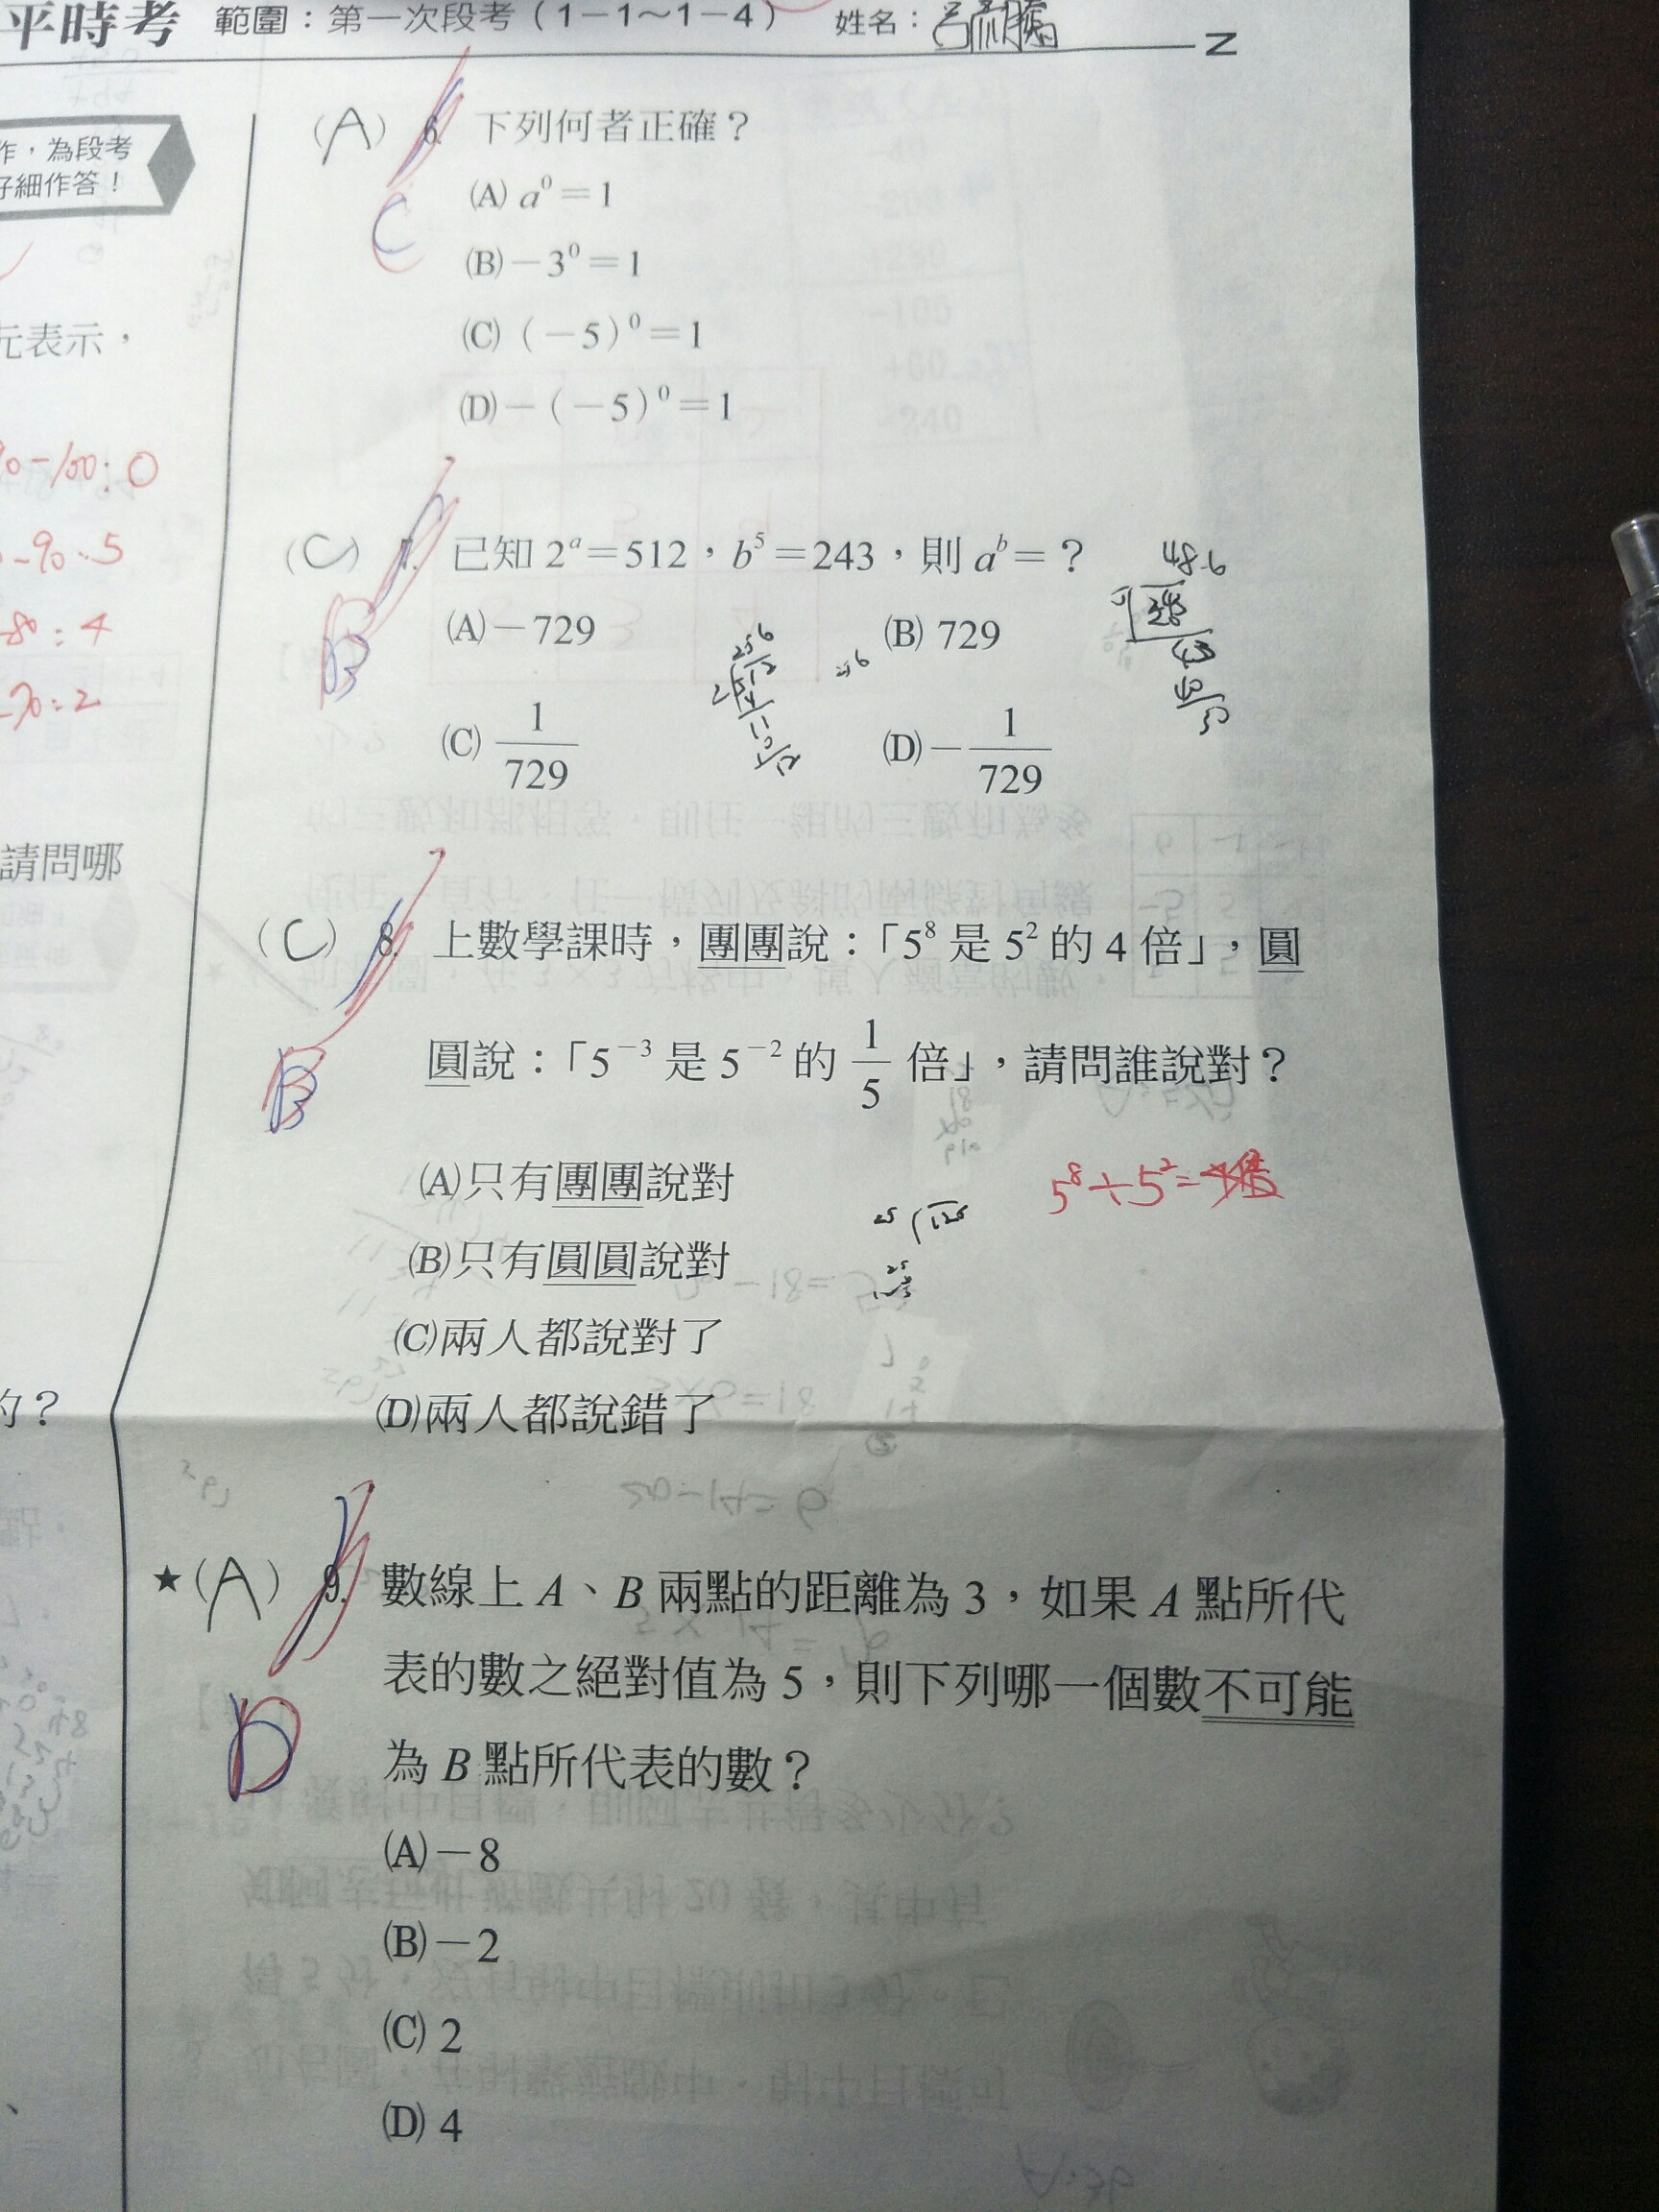 平時考 範圍：第一次段考（1－1～1－4） 姓名：
作，為段考
仔細作答！
元表示，
90-100:0
-90:5
-80:4
-70:2
請問哪
的？
(A) 6. 下列何者正確？
C
(A) a⁰＝1
(B)－3⁰＝1
(C)（－5）⁰＝1
(D)－（－5）⁰＝1
(C) 7. 已知 2ᵃ＝512，b⁵＝243，則 aᵇ＝？
B
48.6
(A)－729
(B) 729
256
(C) 1/729
(D)－1/729
(C) 8. 上數學課時，團團說：「5⁸ 是 5² 的 4 倍」，圓
B
圓說：「5⁻³ 是 5⁻² 的 1/5 倍」，請問誰說對？
(A)只有團團說對
5⁸÷5²=
25 125
(B)只有圓圓說對
(C)兩人都說對了
(D)兩人都說錯了
★(A) 9. 數線上 A、B 兩點的距離為 3，如果 A 點所代
表的數之絕對值為 5，則下列哪一個數不可能
D
為 B 點所代表的數？
(A)－8
(B)－2
(C) 2
(D) 4